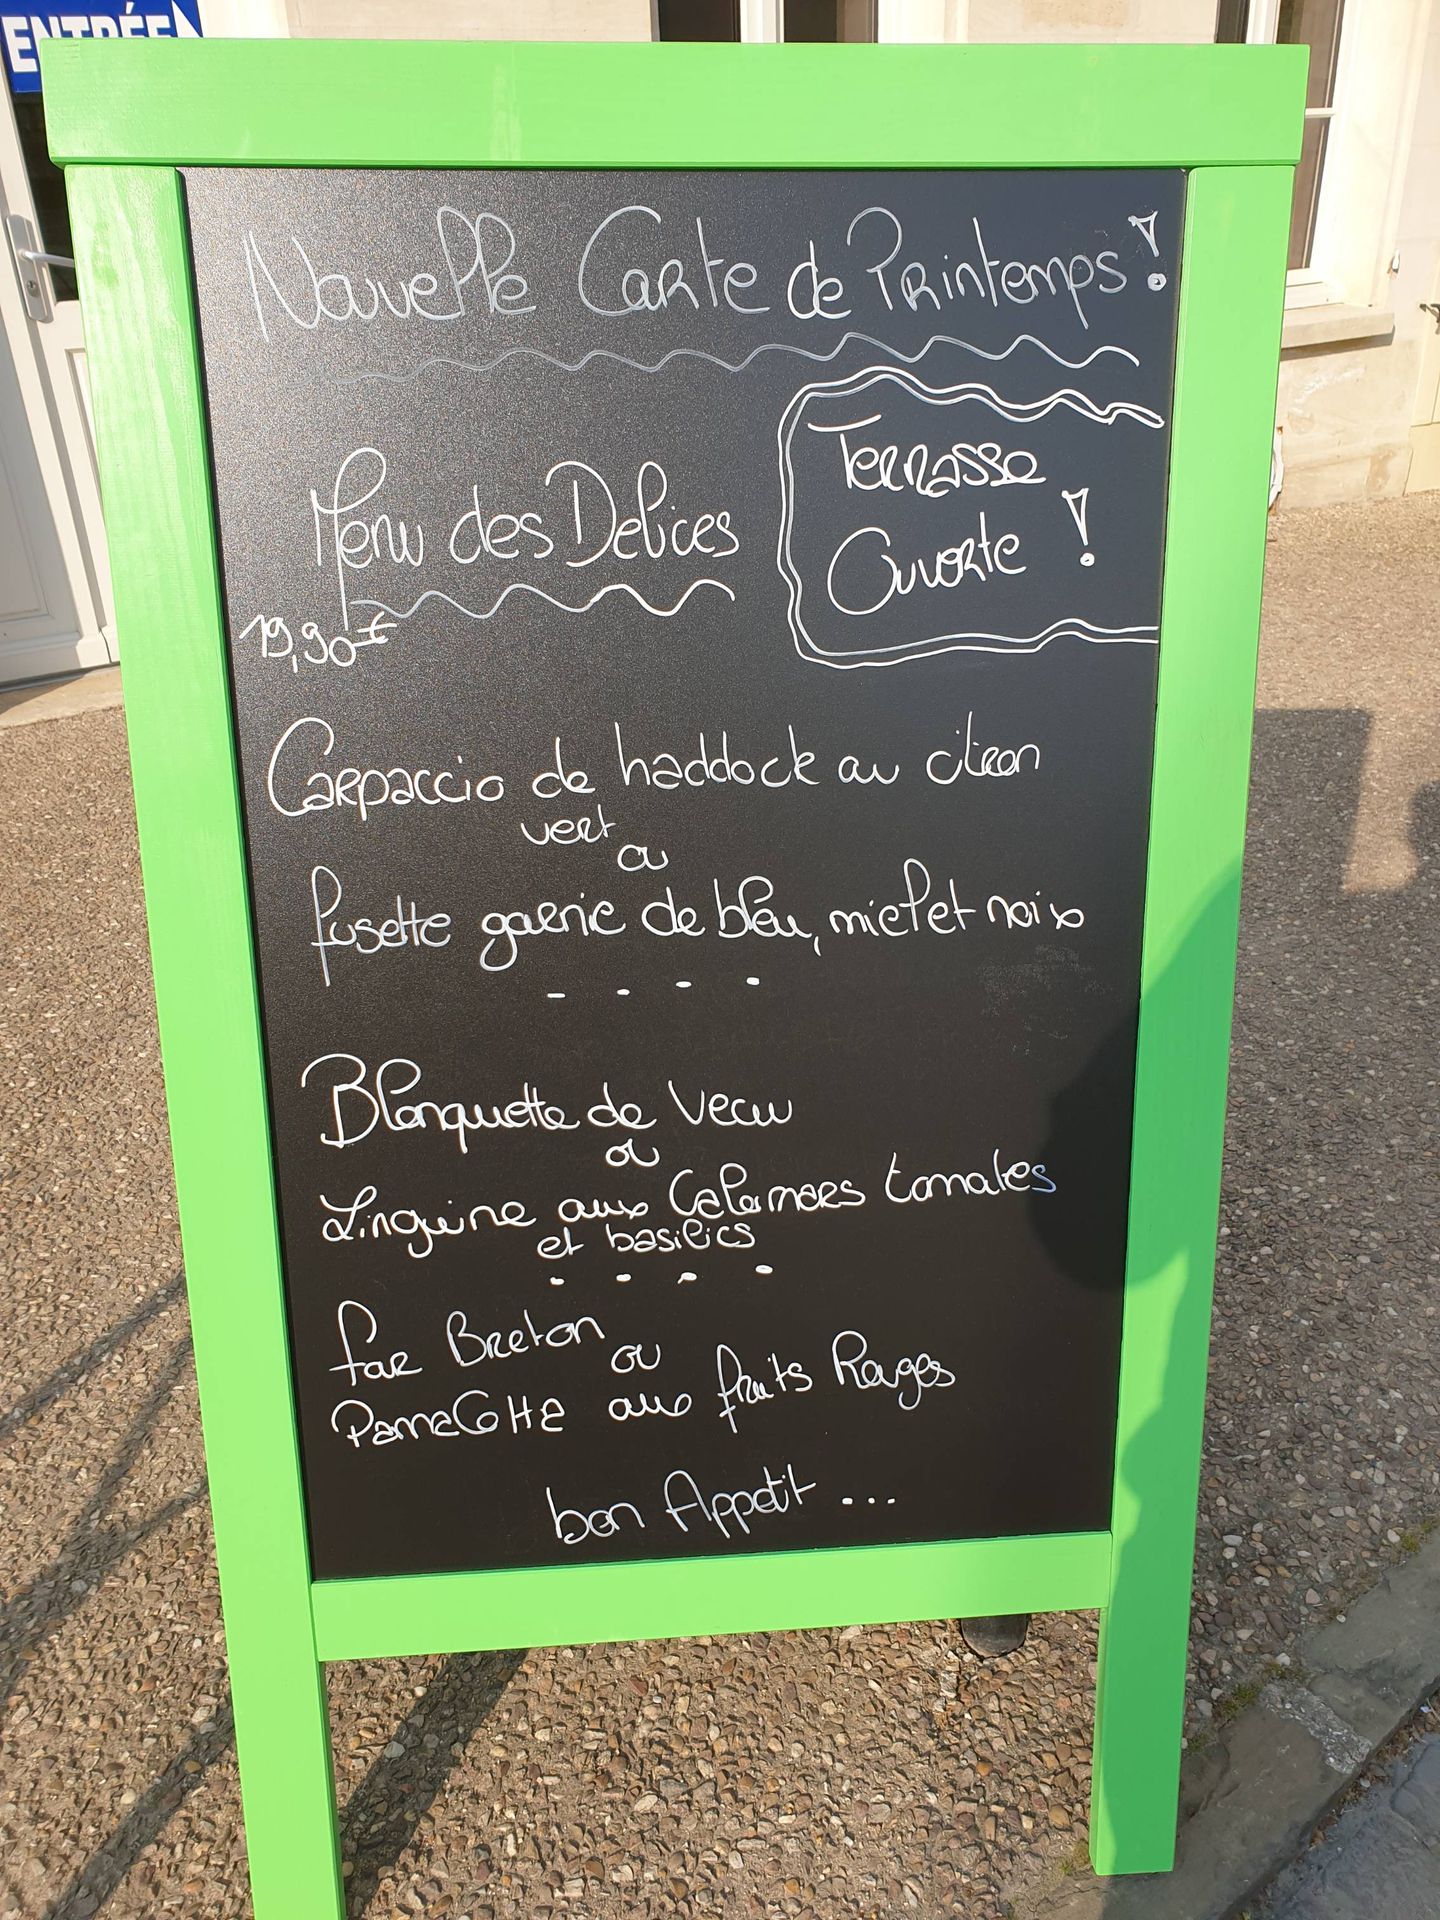 ENTRÉE
Nouvelle Carte de Printemps !
Terrasse
Ouverte !
Menu des Delices
19,90 €
Carpaccio de haddock au citron
vert
ou
fusette garnie de bleu, miel et noix
Blanquette de Veau
ou
Linguine aux Calamars tomates
et basilics
far Breton
ou
PannaCotta aux fruits Rouges
bon Appetit ...